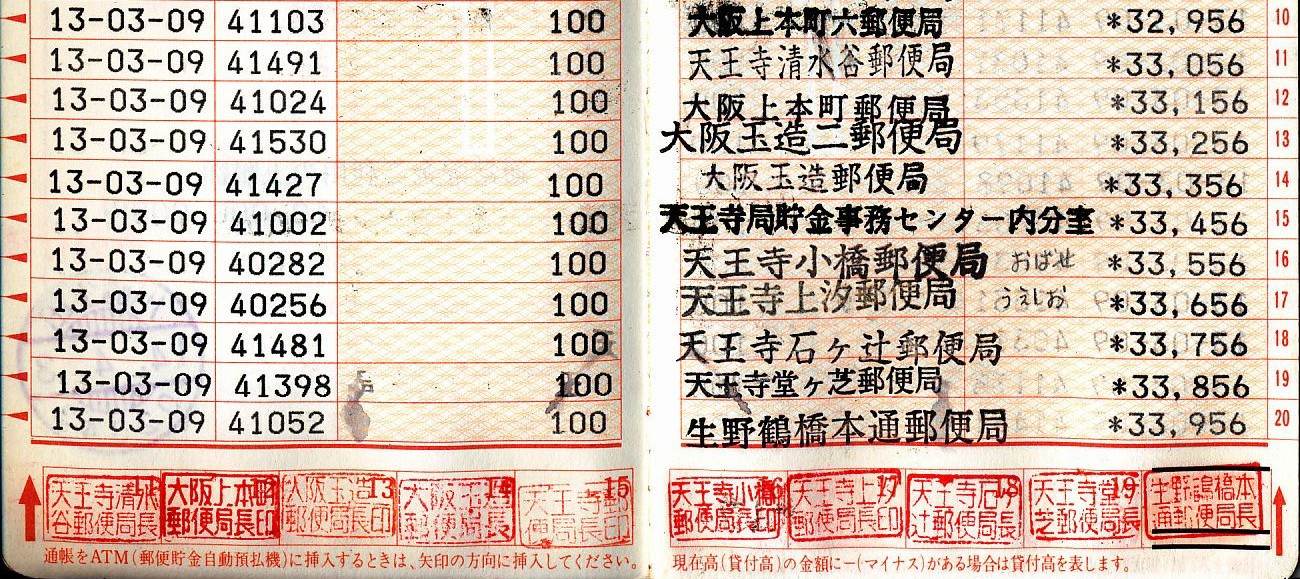 13-03-09 41103 100 大阪上本町六郵便局 *32,956 10
13-03-09 41491 100 天王寺清水谷郵便局 *33,056 11
13-03-09 41024 100 大阪上本町郵便局 *33,156 12
13-03-09 41530 100 大阪玉造二郵便局 *33,256 13
13-03-09 41427 100 大阪玉造郵便局 *33,356 14
13-03-09 41002 100 天王寺局貯金事務センター内分室 *33,456 15
13-03-09 40282 100 天王寺小橋郵便局 おばせ *33,556 16
13-03-09 40256 100 天王寺上汐郵便局 うえしお *33,656 17
13-03-09 41481 100 天王寺石ヶ辻郵便局 *33,756 18
13-03-09 41398 100 天王寺堂ヶ芝郵便局 *33,856 19
13-03-09 41052 100 生野鶴橋本通郵便局 *33,956 20
天王寺清水谷郵便局長
大阪上本町郵便局長印
大阪玉造 13 郵便局長印
大阪玉造 14 郵便局長印
天王寺 15 便局長印
天王寺小橋 16 郵便局長印
天王寺上 17 郵便局長印
天王寺石 18 辻郵便局長
天王寺堂 19 芝郵便局長
生野鶴橋本通郵便局長
通帳をATM(郵便貯金自動預払機)に挿入するときは、矢印の方向に挿入してください。
現在高(貸付高)の金額に−(マイナス)がある場合は貸付高を表します。